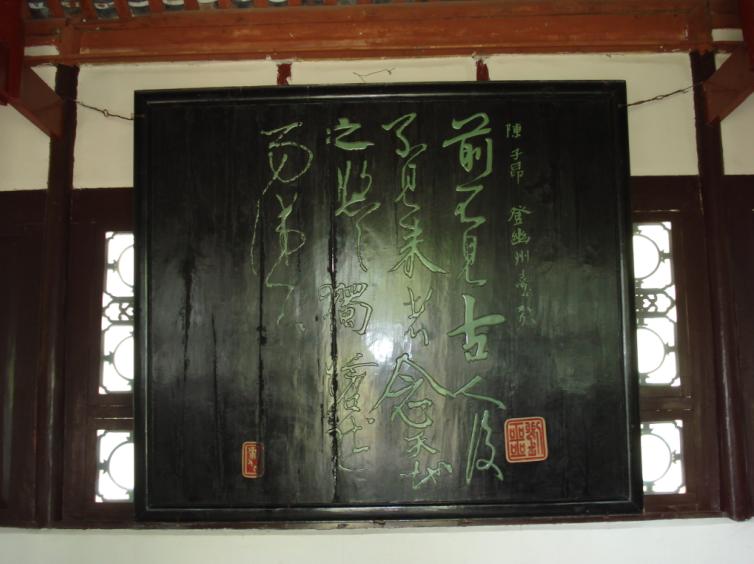 陳子昂 登幽州臺歌
前不見古人後
不見來者念天地
之悠悠獨愴然
而涕下